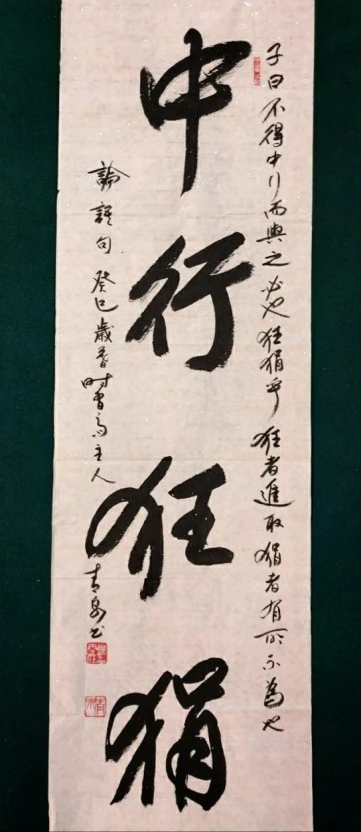 子曰不得中行而與之必也狂狷乎狂者進取狷者有所不為也
中行狂狷
論語句 癸巳歲春时習齋主人
青泉书